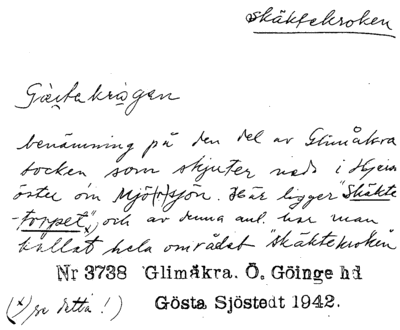 skäktekroken
Gästakrogen
benämning på den del av Glimåkra
socken som skjuter ned i Hjärs
öster om Mjö(r)sjön. Här ligger "Skäkte
torpet"x), och av denna anl. har man
kallat hela området "skäktekroken"
Nr 3738 Glimåkra. Ö. Göinge hd
(x) se detta!) Gösta Sjöstedt 1942.